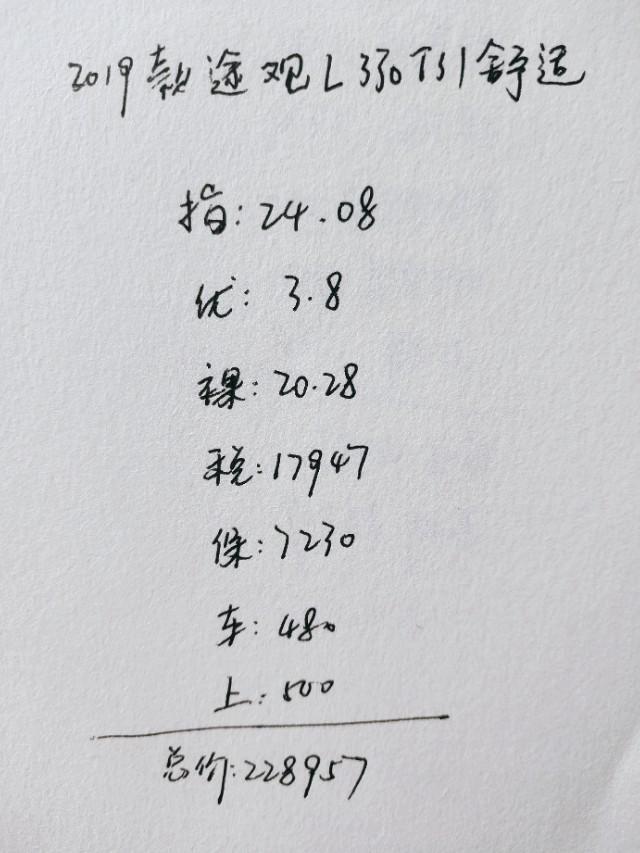 2019款途观L330TSI舒适
指:24.08
优:3.8
裸:20.28
税:17947
保:7230
车:480
上:500
总价:228957